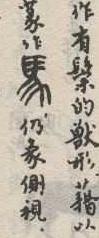 作有鬃的獸形，藉以
篆作馬仍象側視．